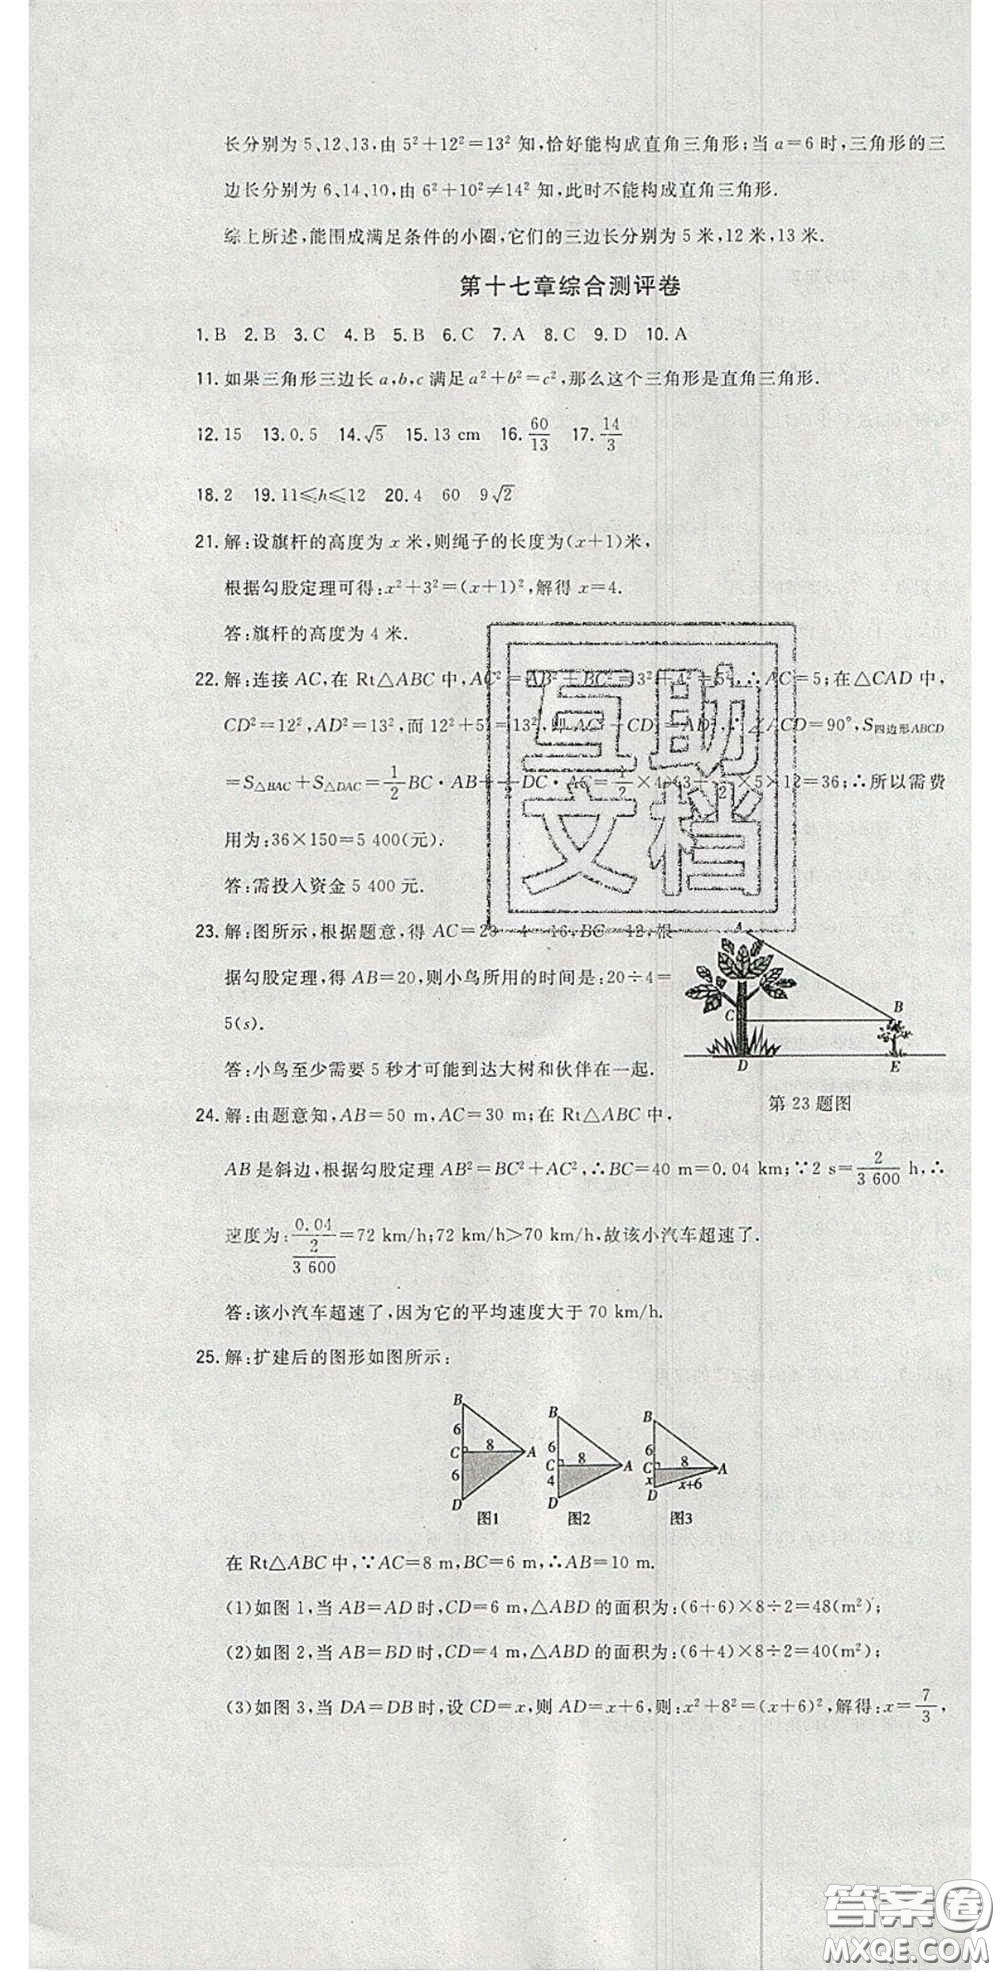 长分别为 5、12、13,由 5²+12²=13² 知,恰好能构成直角三角形;当 a=6 时,三角形的三
边长分别为 6、14、10,由 6²+10²≠14² 知,此时不能构成直角三角形.
综上所述,能围成满足条件的小圈,它们的三边长分别为 5 米,12 米,13 米.
第十七章综合测评卷
1. B 2. B 3. C 4. B 5. C 6. C 7. A 8. C 9. D 10. A
11. 如果三角形三边长 a,b,c 满足 a²+b²=c²,那么这个三角形是直角三角形.
12. 15 13. 0.5 14. √5 15. 13 cm 16. 60/13 17. 14/3
18. 2 19. 11≤h≤12 20. 4 60 9√2
21. 解:设旗杆的高度为 x 米,则绳子的长度为(x+1)米,
根据勾股定理可得:x²+3²=(x+1)²,解得 x=4.
答:旗杆的高度为 4 米.
22. 解:连接 AC,在 Rt△ABC 中,AC²=AB²+BC²=3²+4²=5²,∴AC=5;在△CAD 中,
CD²=12²,AD²=13²,而 12²+5²=13²,即 AC²+CD²=AD²,∴∠ACD=90°,S四边形ABCD
=S△BAC+S△DAC=1/2 BC·AB+1/2 DC·AC=1/2×4×3+1/2×5×12=36;∴所以需费
用为:36×150=5 400(元).
答:需投入资金 5 400 元.
23. 解:图所示,根据题意,得 AC=20-4=16,BC=12,根
据勾股定理,得 AB=20,则小鸟所用的时间是:20÷4=
5(s).
答:小鸟至少需要 5 秒才可能到达大树和伙伴在一起.
A
B
C
D
E
第 23 题图
24. 解:由题意知,AB=50 m,AC=30 m;在 Rt△ABC 中,
AB 是斜边,根据勾股定理 AB²=BC²+AC²,∴BC=40 m=0.04 km;∵2 s=2/3 600 h,∴
速度为:0.04/(2/3 600)=72 km/h;72 km/h>70 km/h,故该小汽车超速了.
答:该小汽车超速了,因为它的平均速度大于 70 km/h.
25. 解:扩建后的图形如图所示:
B 6 C 8 A 6 D 图1
B 6 C 8 A 4 D 图2
B 6 C 8 A x x+6 D 图3
在 Rt△ABC 中,∵AC=8 m,BC=6 m,∴AB=10 m.
(1)如图 1,当 AB=AD 时,CD=6 m,△ABD 的面积为:(6+6)×8÷2=48(m²);
(2)如图 2,当 AB=BD 时,CD=4 m,△ABD 的面积为:(6+4)×8÷2=40(m²);
(3)如图 3,当 DA=DB 时,设 CD=x,则 AD=x+6,则:x²+8²=(x+6)²,解得:x=7/3,
互助
文档
答案圈
MXQE.COM